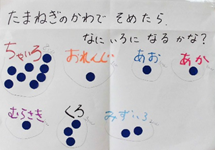 たまねぎのかわで そめたら、
なにいろに なる かな?
ちゃいろ おれんじ あお あか
むらさき くろ みずいろ